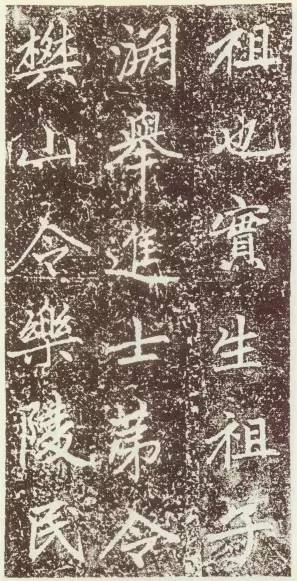 祖也實生祖子
淵舉進士第令
樊山令樂陵民